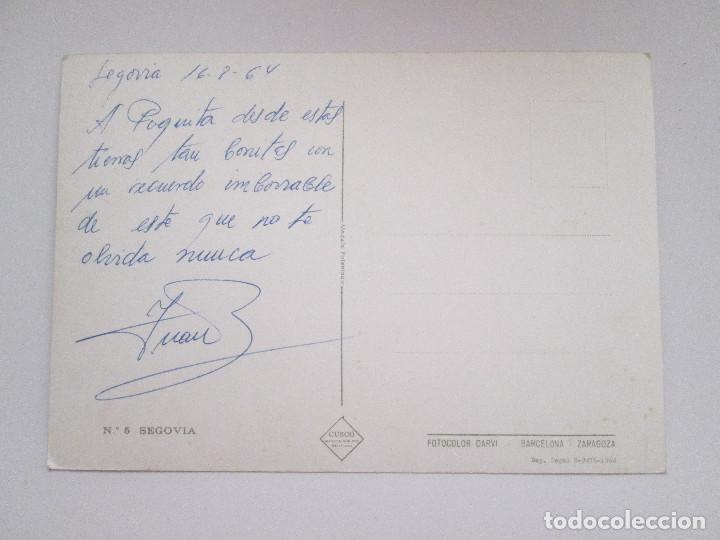 Segovia 16-8-64
A Poquita desde estas
tierras tan bonitas con
un recuerdo imborrable
de este que no te
olvida nunca
Juan B
N.º 5 SEGOVIA
CUSCO
FOTOCOLOR DARVI - BARCELONA - ZARAGOZA
Dep. Legal B-
todocoleccion.net